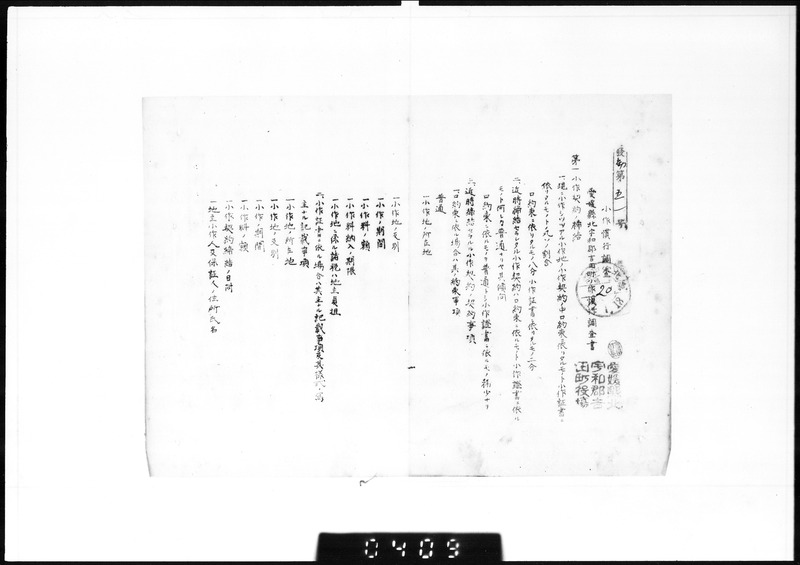 発幼第五一號
小作慣行調査
愛媛縣北宇和郡吉田町小作慣行調査書
愛媛縣北
宇和郡吉
田町役場
20
第一小作契約締結
一、現ニ小作シツツアル小作地ノ小作契約ノ中口約束ニ依リタルモノト小作証書ニ
依リタルモノトノ割合
口約束ニ依リタルモノ八分小作証書ニ依リタルモノ二分
二、近時締結セラルル小作契約ハ口約束ニ依ルモノト小作證書ニ依ル
モノト何レカ普通ナリヤ其傾向
口約束ニ依ルモノヲ普通トシ小作證書ニ依ルモノ稀少ナリ
三、近時締結セラルル小作契約ノ契約事項
1口約束ニ依ル場合ハ其ノ約束事項
普通
一小作地ノ所在地
一小作地ノ反別
一小作ノ期間
一小作料ノ額
一小作料納入ノ期限
一小作地ニ係ル諸税ハ地主負担
2小作証書ニ依ル場合ハ其主ナル記載事項及其
主ナル記載事項
一小作地ノ所在地
一小作地ノ反別
一小作ノ期間
一小作料ノ額
一小作契約締結ノ日附
一地主小作人及保証人ノ住所氏名
0409